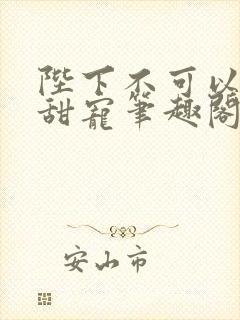 陛下不可以
甜宠笔趣阁
安山市